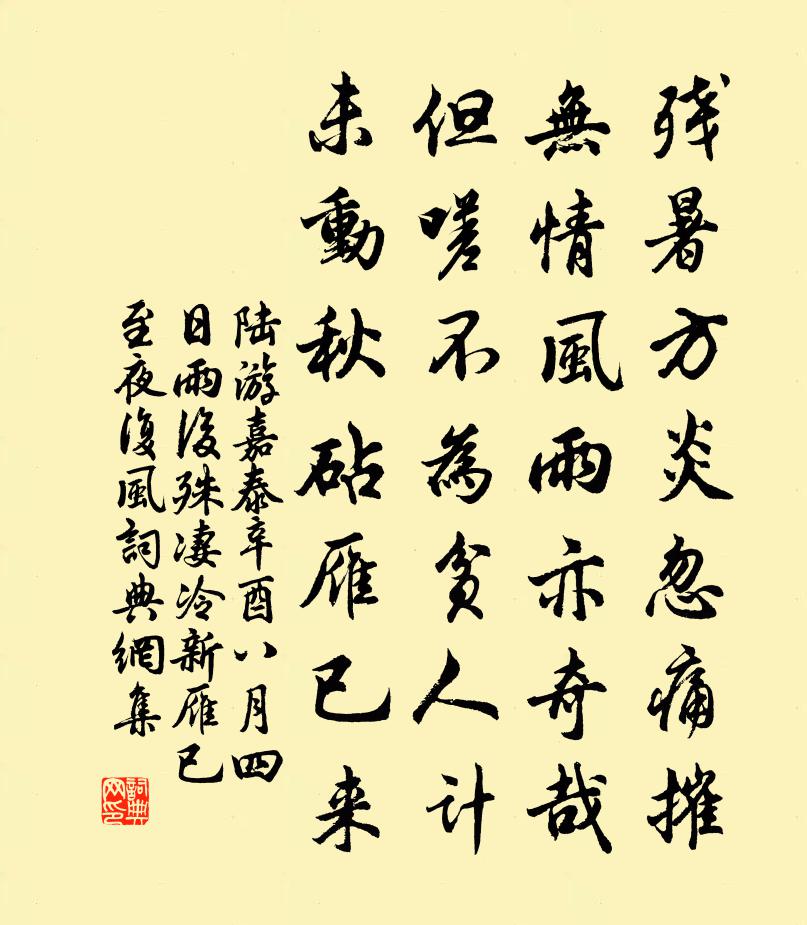 残暑方炎忽痛摧
無情風雨亦奇哉
但嗟不為貧人計
未動秋砧雁已来
陆游嘉泰辛酉八月四
日雨後殊凄冷新雁已
至夜復風詞典網集
詞典
网印